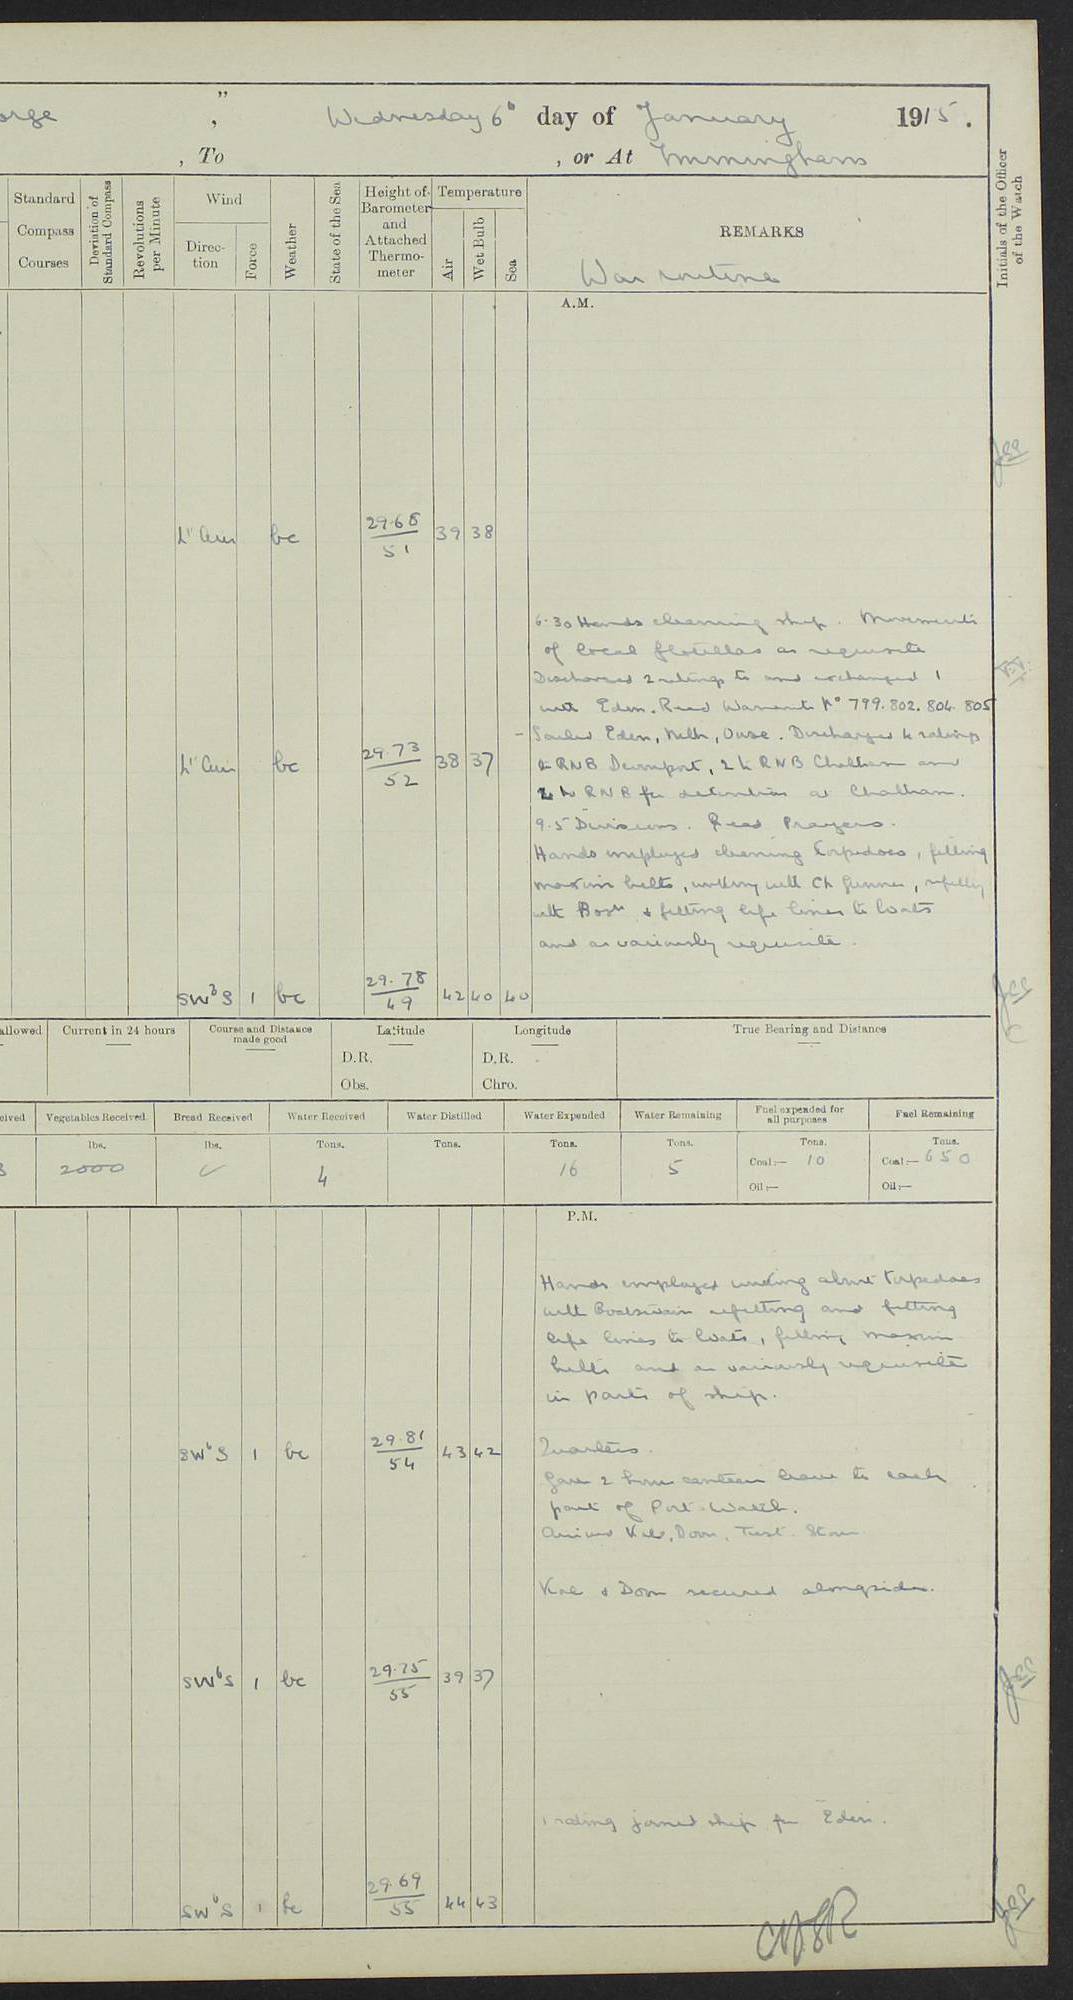 orge , " Wednesday 6th day of January 1915.
, To , or At Immingham
Standard Compass Courses
Deviation of Standard Compass
Revolutions per Minute
Wind
Direction
Force
Weather
State of the Sea
Height of Barometer and Attached Thermometer
Temperature
Air
Wet Bulb
Sea
REMARKS
Initials of the Officer of the Watch
War routine
A.M.
Lt Airs bc 29.68 / 51 39 38
6.30 Hands cleaning ship. Movements
of local flotillas as requisite
Discharged 2 ratings to and exchanged 1
with Eden. Read Warrants No 799. 802. 804. 805
Sailed Eden, Nith, Ouse. Discharged 4 ratings
RNB Devonport, 2 to RNB Chatham and
to RNB for detention at Chatham.
Lt Airs bc 29.73 / 52 38 37
9.5 Divisions. Read Prayers.
Hands employed cleaning torpedoes, filling
maxim belts, working with Ch Gunner, refitting
with Bosn & fitting life lines to boats
and as variously requisite.
SWbS 1 bc 29.78 / 49 42 40 40
allowed
Current in 24 hours
Course and Distance made good
Latitude
Longitude
True Bearing and Distance
D.R. D.R.
Obs. Chro.
eived
Vegetables Received
Bread Received
Water Received
Water Distilled
Water Expended
Water Remaining
Fuel expended for all purposes
Fuel Remaining
lbs. lbs. Tons. Tons. Tons. Tons. Tons. Tons.
2000 ✓ 4 16 5 Coal:— 10 Coal:— 650
Oil:— Oil:—
P.M.
Hands employed working about torpedoes
with Boatswain refitting and fitting
life lines to boats, filling maxim
belts and as variously requisite
in parts of ship.
SWbS 1 bc 29.81 / 54 43 42
Quarters.
Gave 2 hour canteen leave to each
part of Port Watch.
Arrived Kale, Doon, Test. Stour
Kale & Doon secured alongside.
SWbS 1 bc 29.75 / 55 39 37
1 rating joined ship fm Eden.
SWbS 1 bc 29.69 / 55 44 43